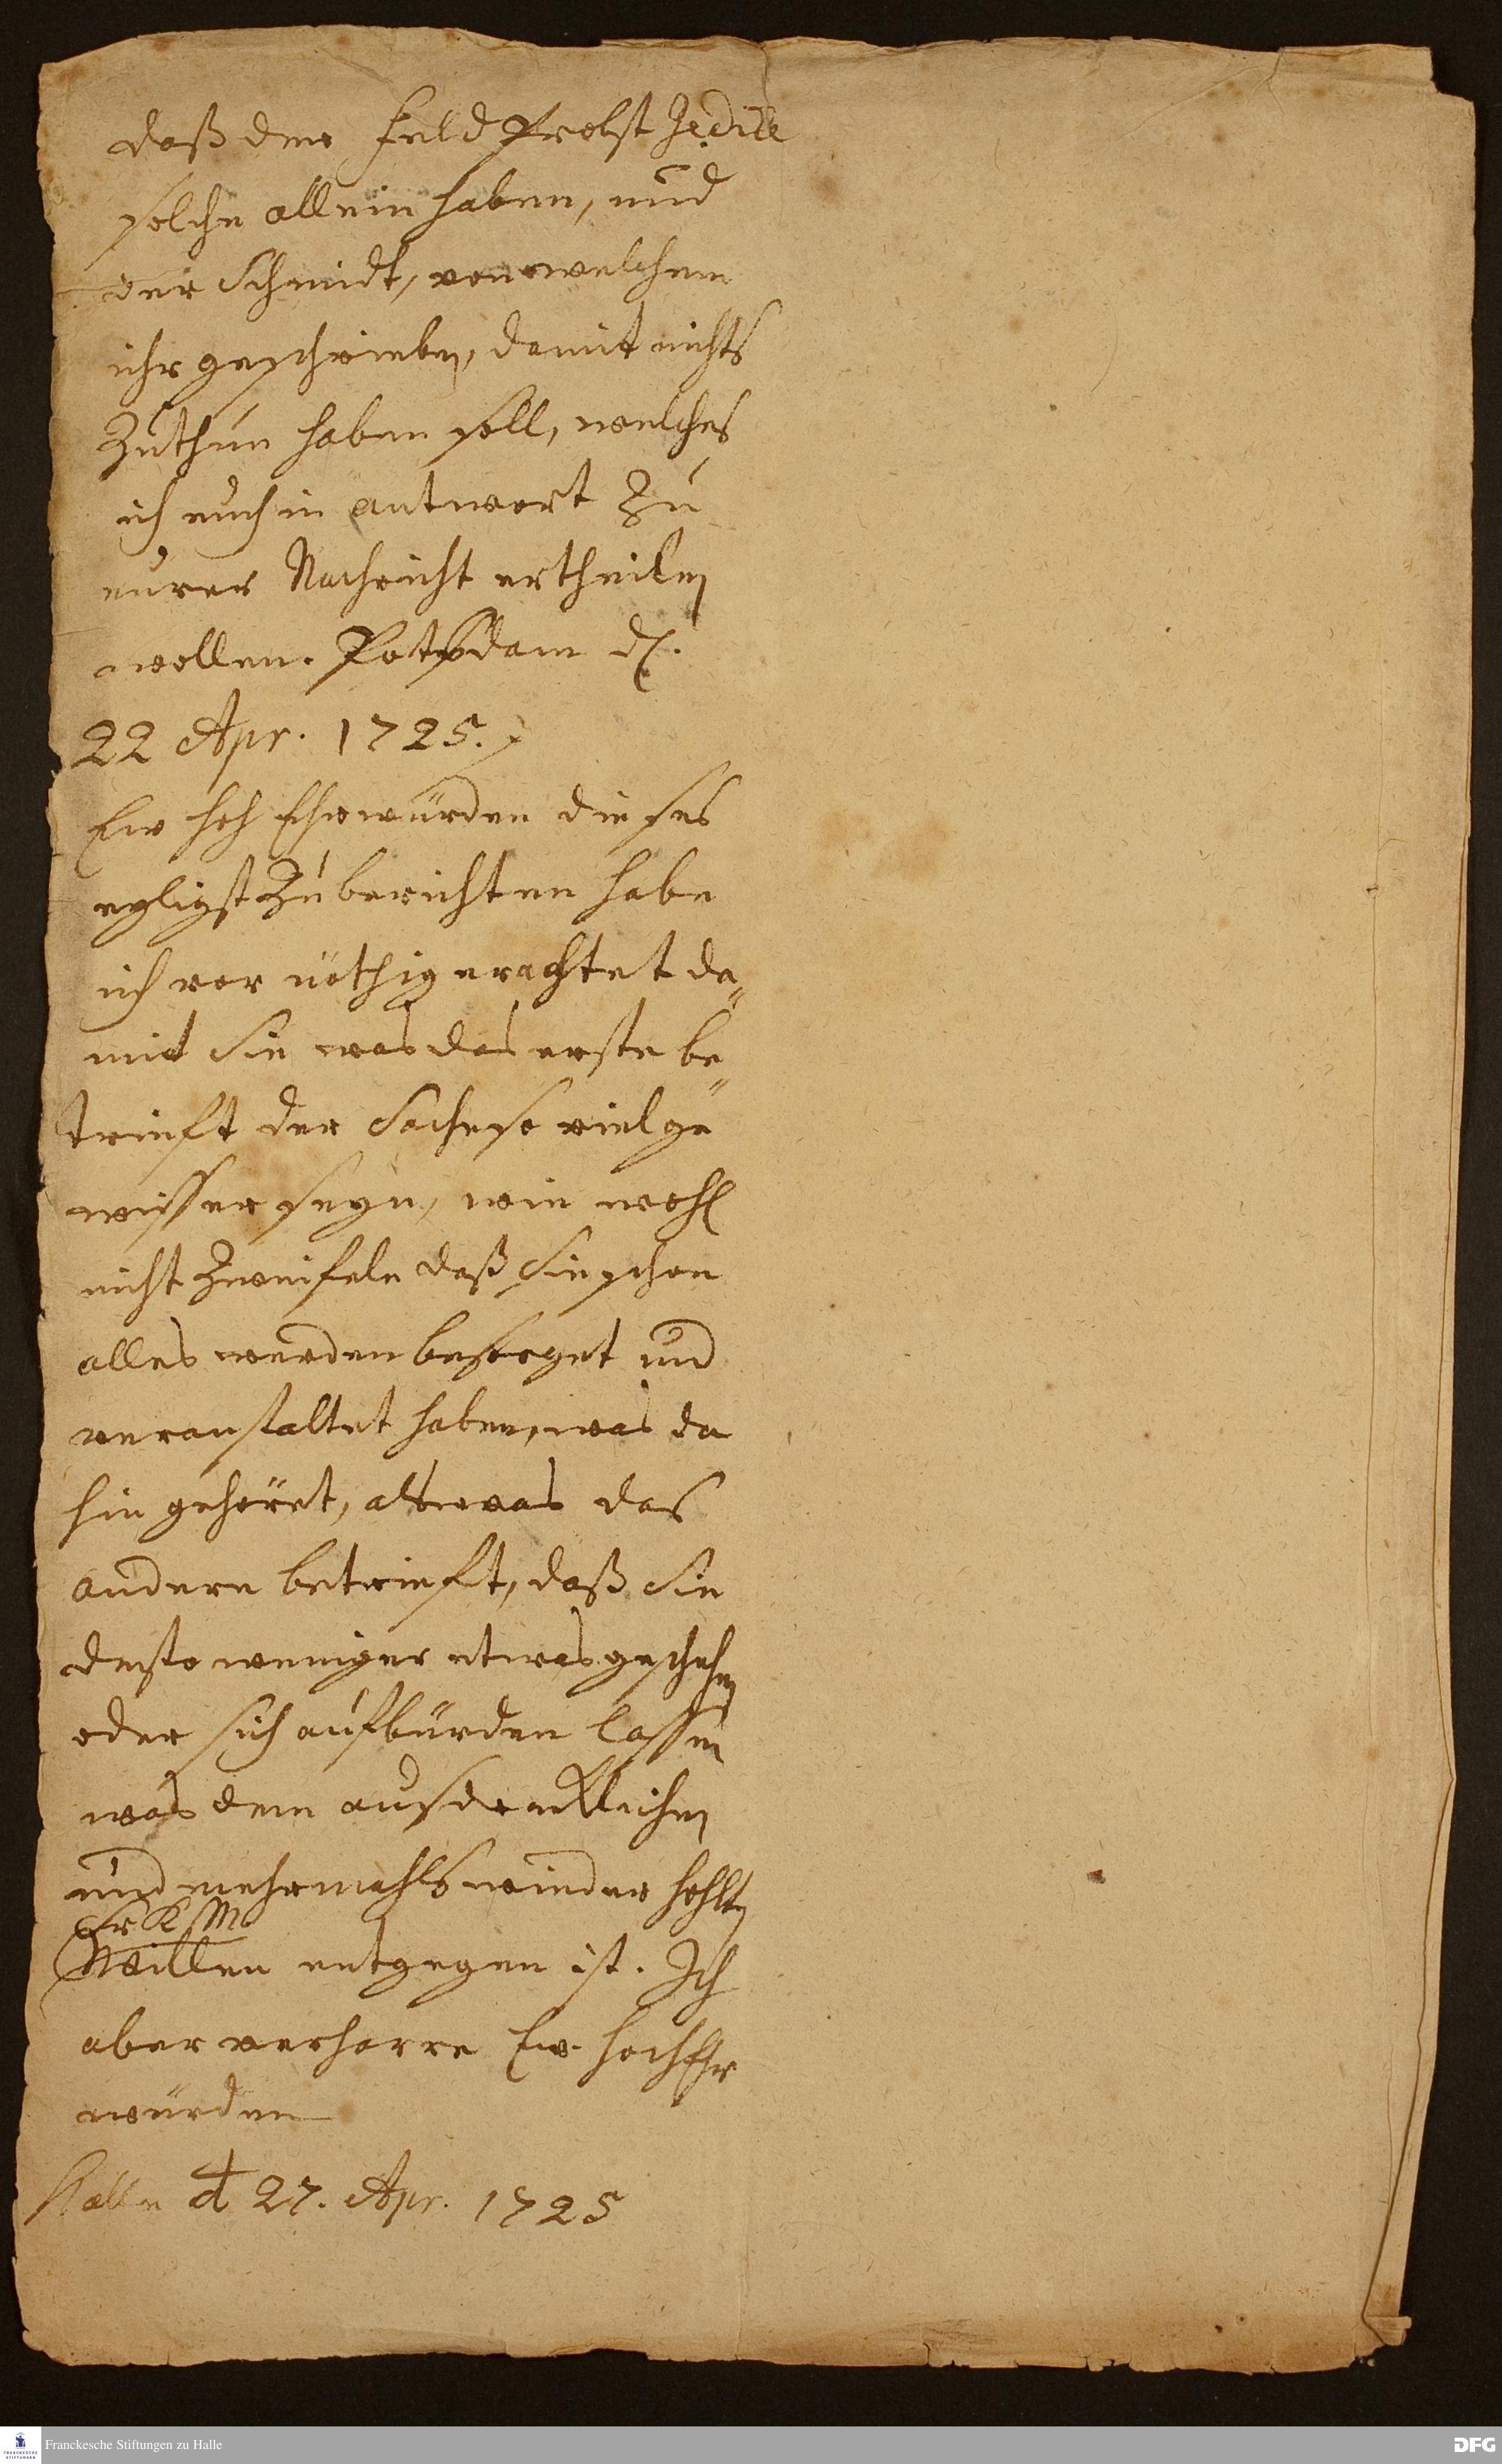 daß der Feld Probst Gedicke
solche allein haben, und
der Schmidt, von welchem
ihr geschrieben, damit nichts
zuthun haben soll, welches
ich euch in antwort zu
eurer Nachricht ertheilen
wollen. Potsdam d.
22 Apr. 1725.
Ew HochEhrwürden dieses
zu berichten habe
ich vor nöthig erachtet da„
mit Sie was das erste be„
trieft der Sache so viel ge
wisser seyn, wie wohl
nicht zweifele daß Sie schon
alles werden besorget und
veranstaltet haben, was da
hin gehöret, als was das
andere betrieft, daß Sie
desto weniger etwas geschehen
oder sich aufbürden lassen
was dem
und mehrmahls wieder hohlten
Sr K M.
Willen entgegen ist. Ich
aber verharre Ew. HochEhr
würden
Halle d 27. Apr. 1725
Franckesche Stiftungen zu Halle
DFG